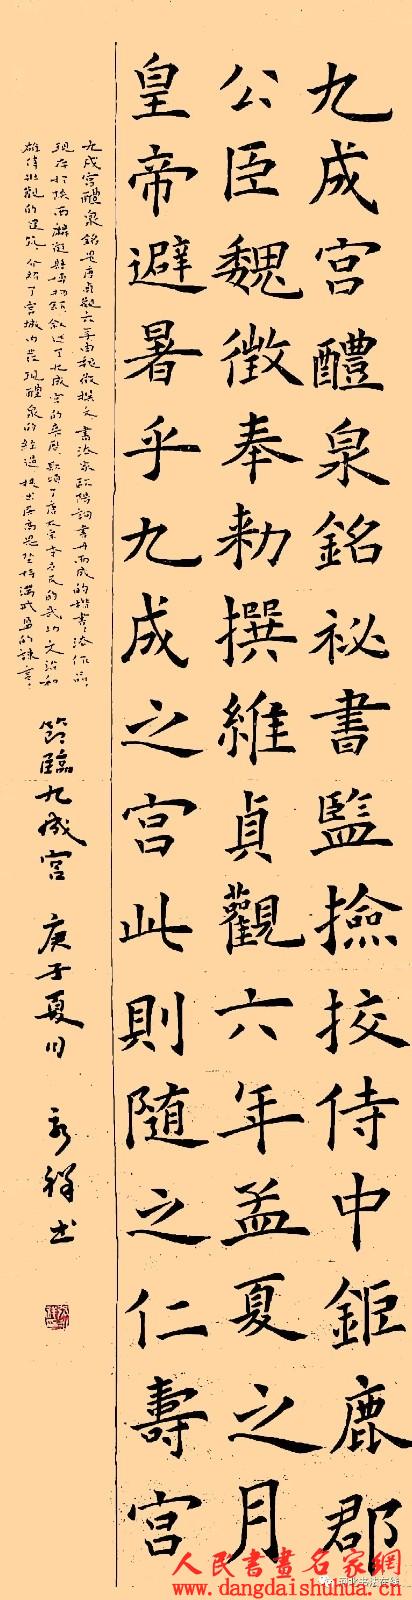 九成宮醴泉銘祕書監撿挍侍中鉅鹿郡
公臣魏徵奉勅撰維貞觀六年孟夏之月
皇帝避暑乎九成之宮此則隨之仁壽宮
九成宮醴泉銘是唐貞觀六年由魏徵撰文書法家歐陽詢書丹而成的楷書書法作品
現存於陝西麟遊縣博物館叙述了九成宮的來歷歌頌了唐太宗李世民的武功文治和
雄偉壯觀的建筑介紹了宮城内發現醴泉的經過提出居高思墜持滿戒盈的諫言
節臨九成宮 庚子夏月 祥书
人民書畫名家網
www.dangdaishuhua.cn
河北书法在线